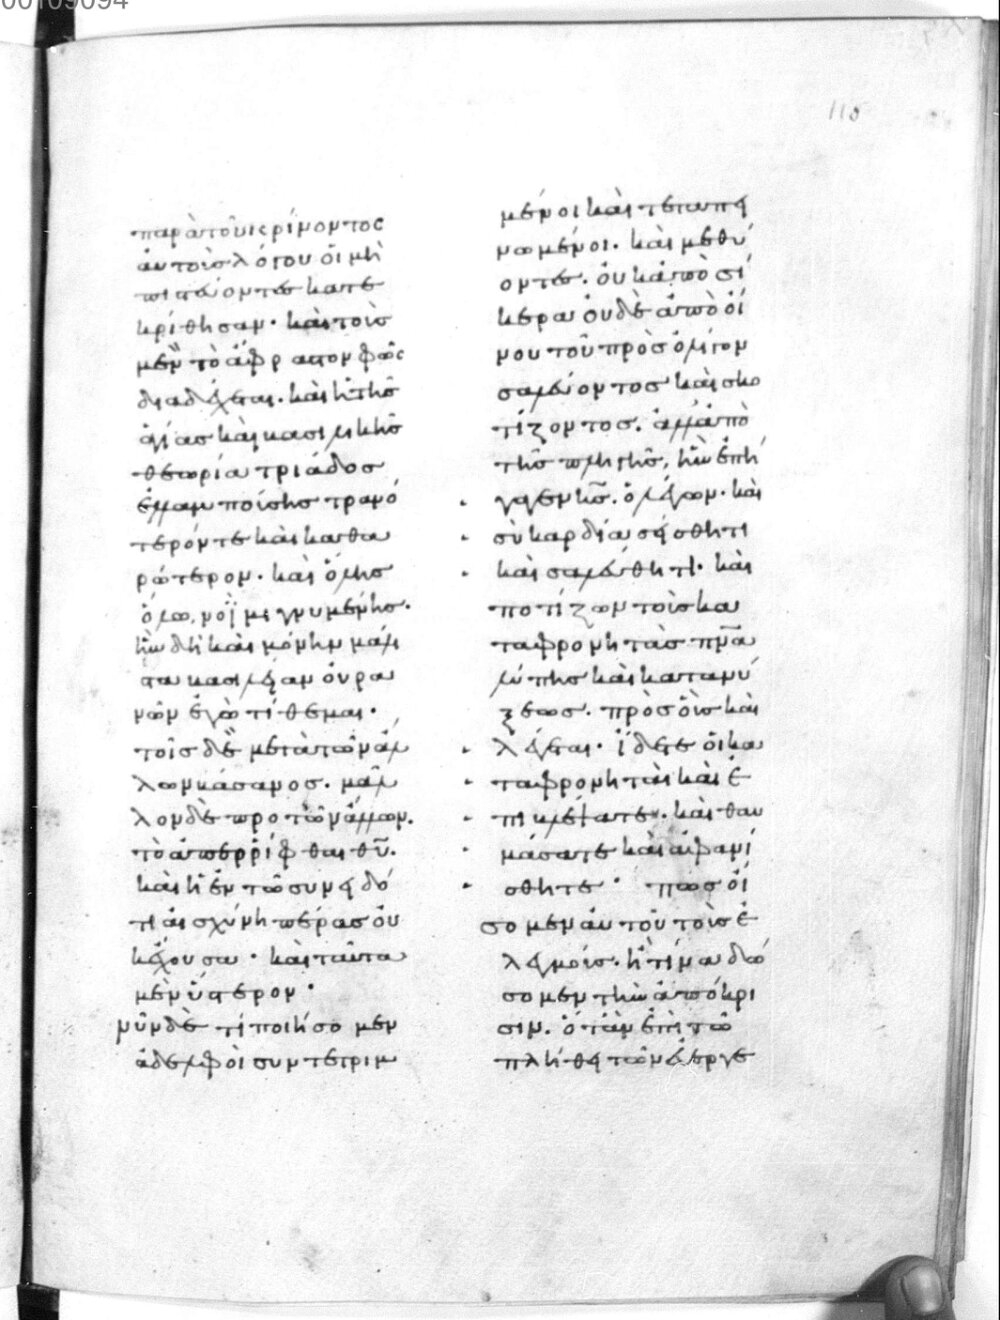 00109094
115
παρὰ τοῦ κρίνοντος
αὐτοὺς λόγου οἱ μὴ
πιστεύοντες κατε
κρίθησαν· καὶ τοὺς
μὲν τὸ ἄφραστον φῶς
διαδέξεται· καὶ ἡ τῆς
ἁγίας καὶ βασιλικῆς
θεωρία τριάδος
ἐλλαμπούσης τρανό
τερόν τε καὶ καθα
ρώτερον· καὶ ὅλης
ὅλω νοῒ μιγνυμένης·
ἣν δὴ καὶ μόνην μάλι
στα βασιλείαν οὐρα
νῶν ἐγὼ τίθεμαι·
τοῖς δὲ μετὰ τῶν ἄλ
λων βάσανος· μᾶλ
λον δὲ πρὸ τῶν ἄλλων·
τὸ ἀπερρίφθαι θῦ·
καὶ ἡ ἐν τῶ συνειδό
τι αἰσχύνη πέρας οὐκ
ἔχουσα· καὶ ταῦτα
μὲν ὕστερον·
νῦν δὲ τί ποιήσομεν
ἀδελφοὶ συντετριμ
μένοι καὶ τεταπει
νωμένοι· καὶ μεθύ
οντες· οὐκ ἀπὸ σί
κερα οὐδὲ ἀπὸ οἴ
νου τοῦ πρὸς ὀλίγον
σαλεύοντος καὶ σκο
τίζοντος· ἀλλ' ἀπὸ
τῆς πληγῆς, ἣν ἐπή
γαγεν κς. ὁ λέγων· καὶ
σὺ καρδία σείσθητι
καὶ σαλεύθητι· καὶ
ποτίζων τοὺς κα
ταφρονητὰς πνα
λύπης καὶ κατανύ
ξεως· πρὸς οὓς καὶ
λέγεται· ἴδετε οἱ κα
ταφρονηταὶ καὶ ἐ
πιβλέψατε· καὶ θαυ
μάσατε καὶ ἀφανί
σθητε· πῶς οἴ
σομεν αὐτοῦ τοὺς ἐ
λεγμούς· ἢ τίνα δώ
σομεν τὴν ἀπόκρι
σιν· ὅταν ἐπὶ τῶ
πλήθει τῶν εὐεργε